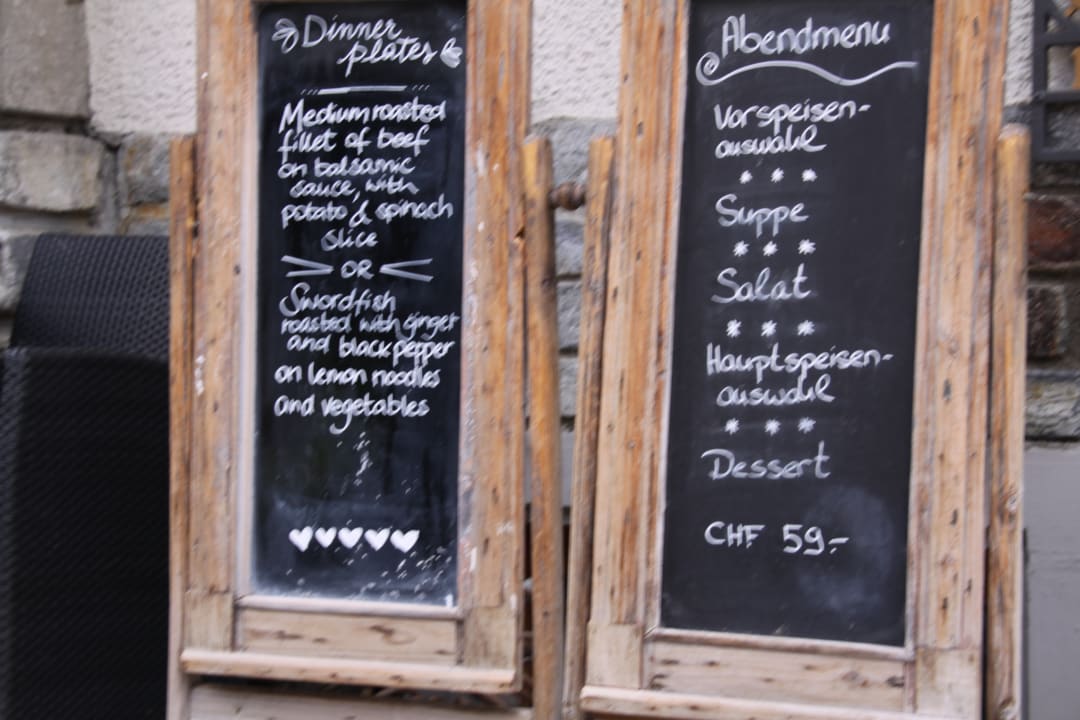 Dinner
plates
Medium roasted
fillet of beef
on balsamic
sauce, with
potato & spinach
slice
OR
Swordfish
roasted with ginger
and black pepper
on lemon noodles
and vegetables
Abendmenu
Vorspeisen-
auswahl
* * *
Suppe
* * *
Salat
* * *
Hauptspeisen-
auswahl
* * *
Dessert
CHF 59.-